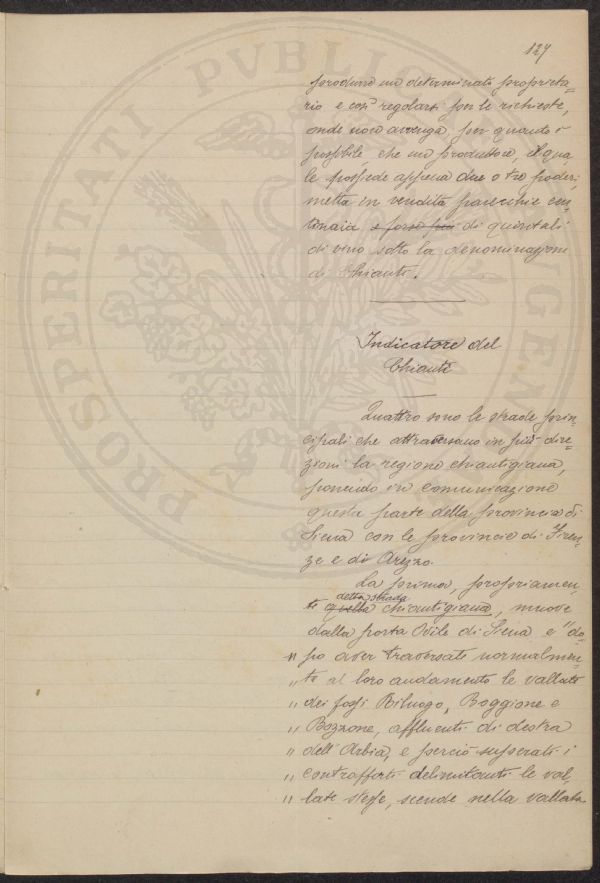 127
produrre un determinato proprieta=
rio e così regolarsi per le richieste,
onde non avvenga, per quanto è
possibile, che un produttore, il qua,
le possiede appena due o tre poderi,
metta in vendita parecchie cen,
tinaia e forse più di quintali
di vino sotto la denominazione
di Chianti.
Indicatore del
Chianti
Quattro sono le strade prin=
cipali che attraversano in più dire=
zioni la regione chiantigiana,
ponendo in comunicazione
questa parte della provincia di
Siena con le provincie di Firen,
ze e di Arezzo.
La prima, propriamen,
detta strada
te quella chiantigiana, muove
dalla porta Ovile di Siena e "do=
" po aver traversate normalmen=
" te al loro andamento le vallate
" dei fossi Riluogo, Boggione e
" Bozzone, affluenti di destra
" dell'Arbia, e perciò superati i
" contrafforti delimitanti le val,
" late stesse, scende nella vallata
PROSPERITATI PVBLICAE